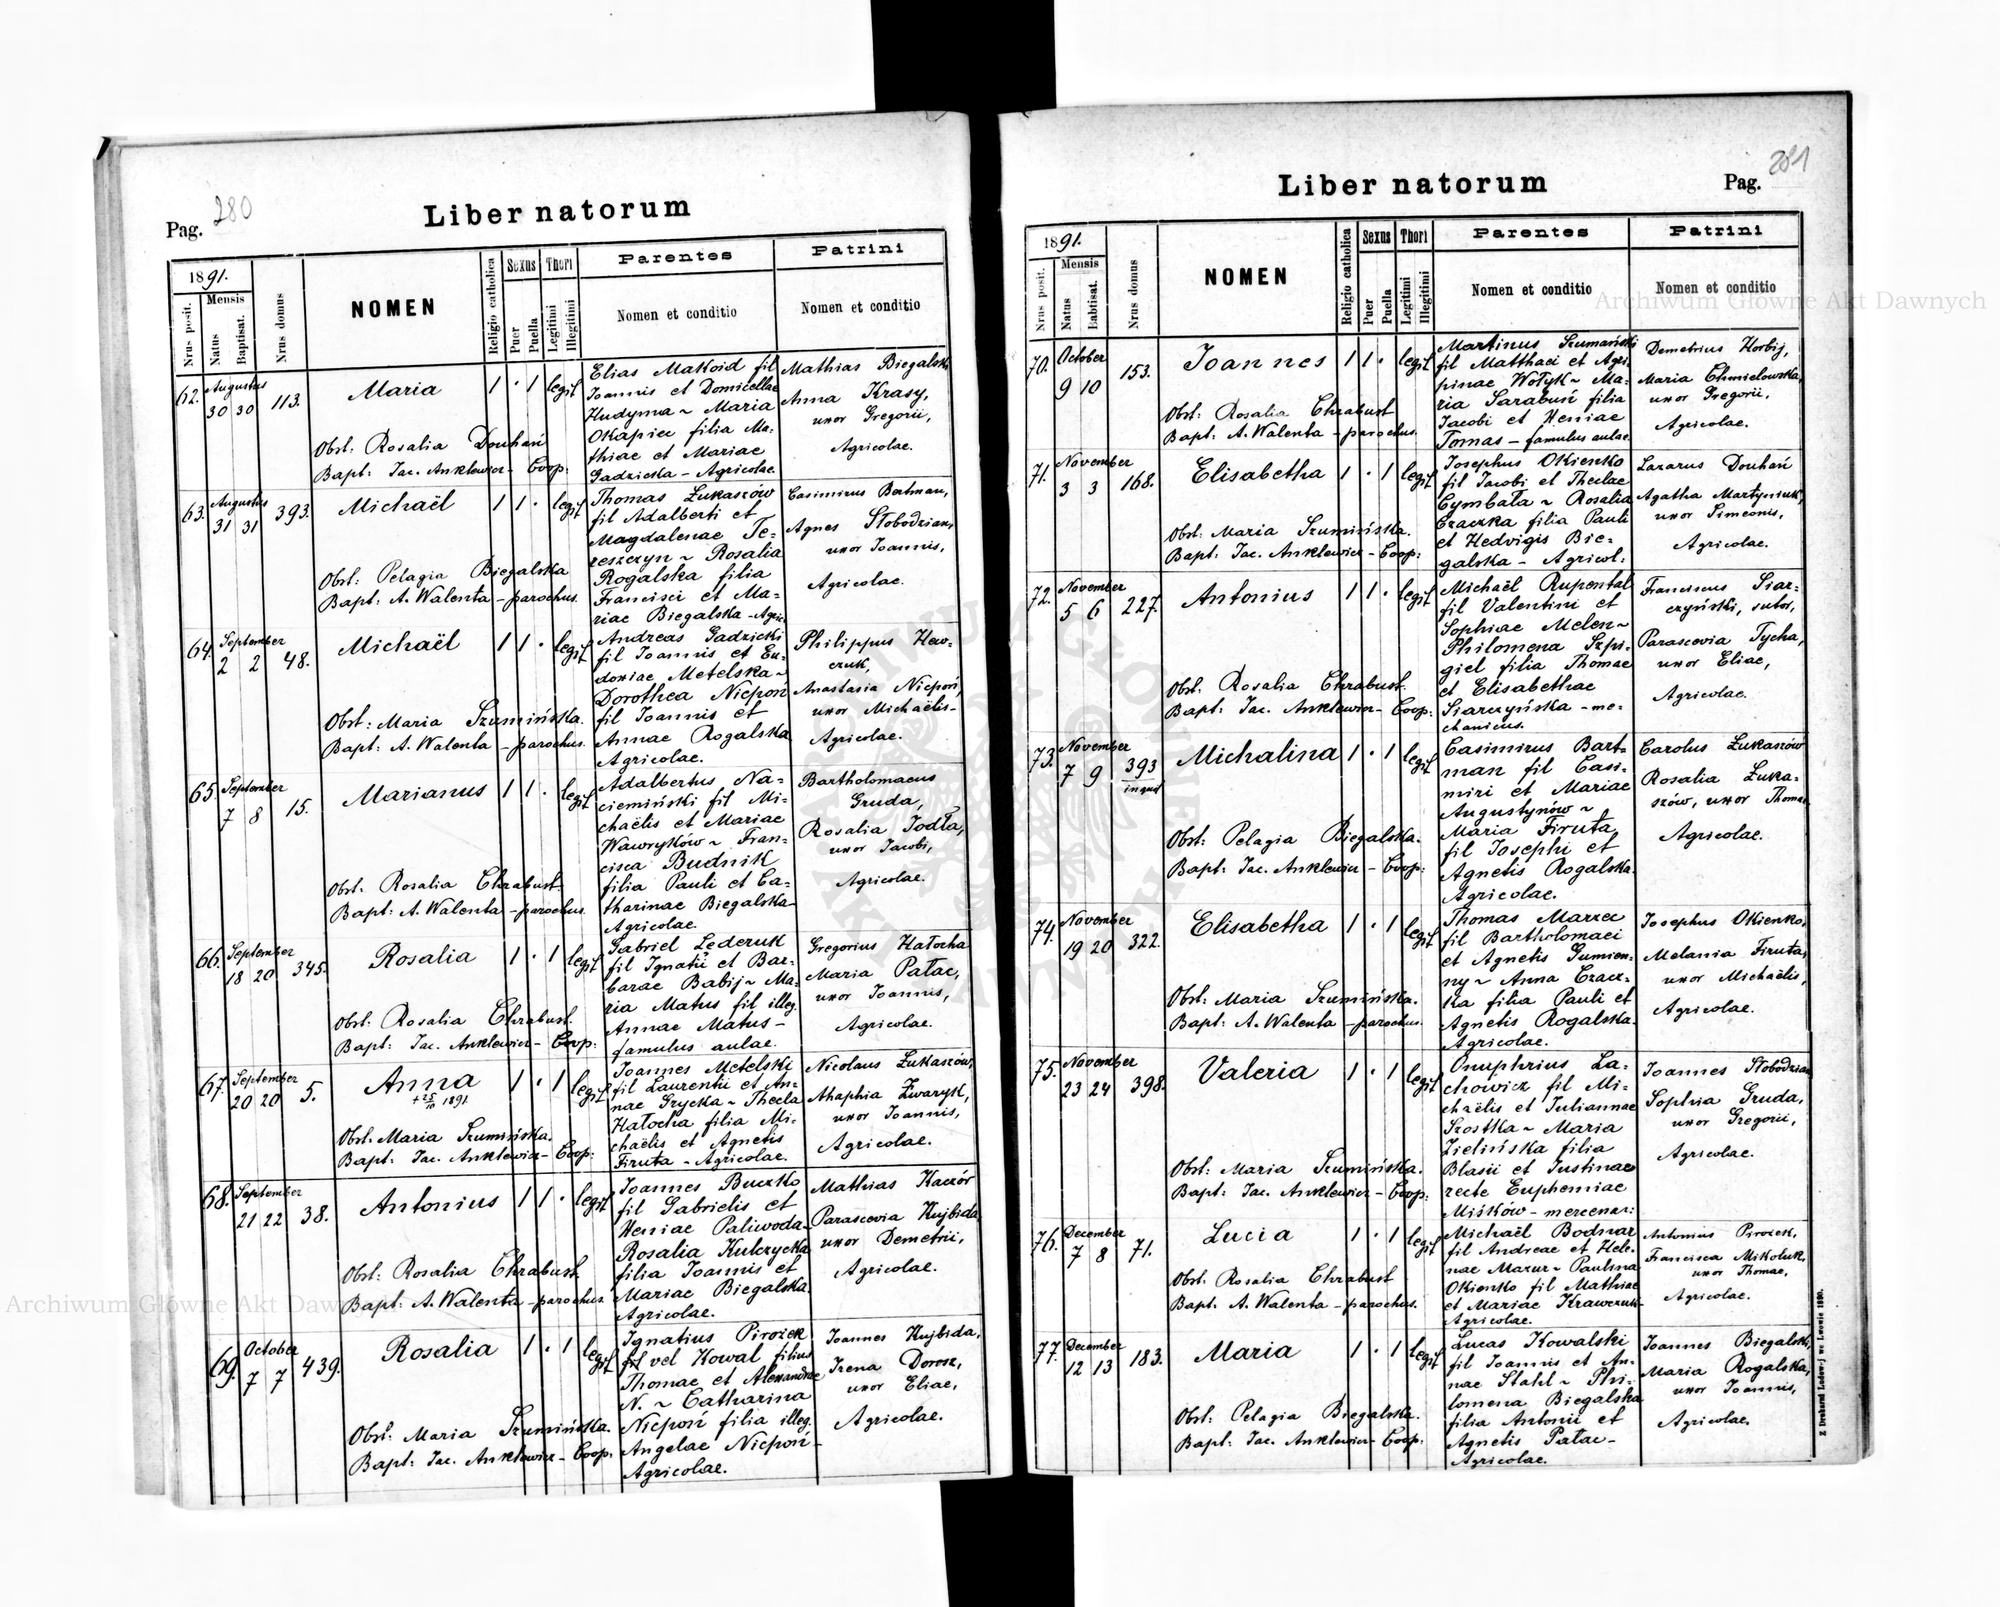 Pag. 280
Liber natorum
1891.
Nrus posit.
Mensis
Natus
Baptisat.
Nrus domus
NOMEN
Religio catholica
Sexus
Puer
Puella
Thori
Legitimi
Illegitimi
Parentes
Nomen et conditio
Patrini
Nomen et conditio
62. Augustus 30 30 113. Maria 1 . 1 legit
Obst: Rosalia Douhań
Bapt: Jac. Anklewicz - Coop:
Elias Makoid fil
Joannis et Domicellae
Hudyma ~ Maria
Okapiec filia Ma-
thiae et Mariae
Gadzicka - Agricolae.
Mathias Biegalski,
Anna Krasy,
uxor Gregorii,
Agricolae.
63. Augustus 31 31 393. Michaël 1 1 . legit
Obst: Pelagia Biegalska
Bapt: A. Walenta - parochus.
Thomas Łukaszów
fil Adalberti et
Magdalenae Te-
reszczyn ~ Rosalia
Rogalska filia
Francisci et Ma-
riae Biegalska - Agric.
Casimirus Bartman,
Agnes Słobodzian,
uxor Joannis,
Agricolae.
64. September 2 2 48. Michaël 1 1 . legit
Obst: Maria Szumińska.
Bapt: A. Walenta - parochus.
Andreas Gadzicki
fil Joannis et Eu-
doxiae Metelska ~
Dorothea Niepoń
fil Joannis et
Annae Rogalska
Agricolae.
Philippus Haw-
czuk,
Anastasia Niepoń,
uxor Michaëlis -
Agricolae.
65. September 7 8 15. Marianus 1 1 . legit
Obst: Rosalia Chrabust.
Bapt: A. Walenta - parochus.
Adalbertus Na-
ciemiński fil Mi-
chaëlis et Mariae
Wawryków ~ Fran-
cisca Budnik
filia Pauli et Ca-
tharinae Biegalska -
Agricolae.
Bartholomaeus
Gruda,
Rosalia Jodła,
uxor Jacobi,
Agricolae.
66. September 18 20 345. Rosalia 1 . 1 legit
Obst: Rosalia Chrabust.
Bapt: Jac. Anklewicz - Coop:
Gabriel Lederuk
fil Ignatii et Bar-
barae Babij ~ Ma-
ria Matus fil illeg.
Annae Matus -
famulus aulae.
Gregorius Hałocha
Maria Pałac,
uxor Joannis,
Agricolae.
67. September 20 20 5. Anna 1 . 1 legit
+ 25/10 1891.
Obst: Maria Szumińska.
Bapt: Jac. Anklewicz - Coop:
Joannes Metelski
fil Laurentii et An-
nae Grycka ~ Thecla
Hałocha filia Mi-
chaëlis et Agnetis
Firuta - Agricolae.
Nicolaus Łukaszów,
Ahaphia Żwaryk,
uxor Joannis,
Agricolae.
68. September 21 22 38. Antonius 1 1 . legit
Obst: Rosalia Chrabust.
Bapt: A. Walenta - parochus.
Joannes Buczko
fil Gabrielis et
Xeniae Paliwoda -
Rosalia Kulczycka
filia Joannis et
Mariae Biegalska.
Agricolae.
Mathias Kaczór
Parascevia Kujbida
uxor Demetrii,
Agricolae.
69. October 7 7 439. Rosalia 1 . 1 legit
Obst: Maria Szumińska.
Bapt: Jac. Anklewicz - Coop:
Ignatius Pirożek
fil vel Kowal filius
Thomae et Alexandrae
N. ~ Catharina
Niepoń filia illeg.
Angelae Niepoń -
Agricolae.
Joannes Kujbida,
Irena Dorosz,
uxor Eliae,
Agricolae.
Liber natorum
Pag. 281
1891.
Nrus posit.
Mensis
Natus
Babtisat.
Nrus domus
NOMEN
Religio catholica
Sexus
Puer
Puella
Thori
Legitimi
Illegitimi
Parentes
Nomen et conditio
Patrini
Nomen et conditio
70. October 9 10 153. Joannes 1 1 . legit
Obst: Rosalia Chrabust
Bapt: A. Walenta - parochus.
Martinus Szumański
fil Matthaei et Agri-
pinae Wołyk ~ Ma-
ria Sarabuń filia
Jacobi et Xeniae
Tomas - famulus aulae.
Demetrius Horbij,
Maria Chmielowska,
uxor Gregorii,
Agricolae.
71. November 3 3 168. Elisabetha 1 . 1 legit
Obst: Maria Szumińska.
Bapt: Jac. Anklewicz - Coop:
Josephus Okienko
fil Jacobi et Theclae
Cymbała ~ Rosalia
Czaczka filia Pauli
et Hedvigis Bie-
galska - Agricol:
Lazarus Douhań
Agatha Martyniuk,
uxor Simeonis,
Agricolae.
72. November 5 6 227. Antonius 1 1 . legit
Obst: Rosalia Chrabust.
Bapt: Jac. Anklewicz - Coop:
Michaël Rupental
fil Valentini et
Sophiae Melen ~
Philomena Szpi-
giel filia Thomae
et Elisabethae
Siarczyńska - me-
chanicus.
Franciscus Siar-
czyński, sutor,
Parascevia Tycha,
uxor Eliae,
Agricolae.
73. November 7 9 393 inquil Michalina 1 . 1 legit
Obst: Pelagia Biegalska.
Bapt: Jac. Anklewicz - Coop:
Casimirus Bart-
man fil Casi-
miri et Mariae
Augustynów ~
Maria Firuta,
fil Josephi et
Agnetis Rogalska.
Agricolae.
Carolus Łukaszów
Rosalia Łuka-
szów, uxor Thomae
Agricolae.
74. November 19 20 322. Elisabetha 1 . 1 legit
Obst: Maria Szumińska.
Bapt: A. Walenta - parochus.
Thomas Marzec
fil Bartholomaei
et Agnetis Gumien-
ny ~ Anna Czacz-
ka filia Pauli et
Agnetis Rogalska.
Agricolae.
Josephus Okienko,
Melania Firuta,
uxor Michaëlis,
Agricolae.
75. November 23 24 398. Valeria 1 . 1 legit
Obst: Maria Szumińska.
Bapt: Jac. Anklewicz - Coop:
Onuphrius La-
chowicz fil Mi-
chaëlis et Juliannae
Szostka ~ Maria
Zielińska filia
Blasii et Justinae
recte Euphemiae
Miśków - mercenar:
Joannes Słobodzian
Sophia Gruda,
uxor Gregorii,
Agricolae.
76. December 7 8 71. Lucia 1 . 1 legit
Obst: Rosalia Chrabust
Bapt: A. Walenta - parochus.
Michaël Bodnar
fil Andreae et Hele-
nae Mazur ~ Paulina
Okienko fil Mathiae
et Mariae Krawczuk -
Agricolae.
Antonius Pirożek,
Francisca Mikoluk,
uxor Thomae,
Agricolae.
77. December 12 13 183. Maria 1 . 1 legit
Obst: Pelagia Biegalska.
Bapt: Jac. Anklewicz - Coop:
Lucas Kowalski
fil Joannis et An-
nae Stahl ~ Phi-
lomena Biegalska
filia Antonii et
Agnetis Pałac -
Agricolae.
Joannes Biegalski,
Maria Rogalska,
uxor Joannis,
Agricolae.
Z Drukarni Ludowej we Lwowie 1890.
Archiwum Główne Akt Dawnych
Archiwum Główne Akt Dawnych